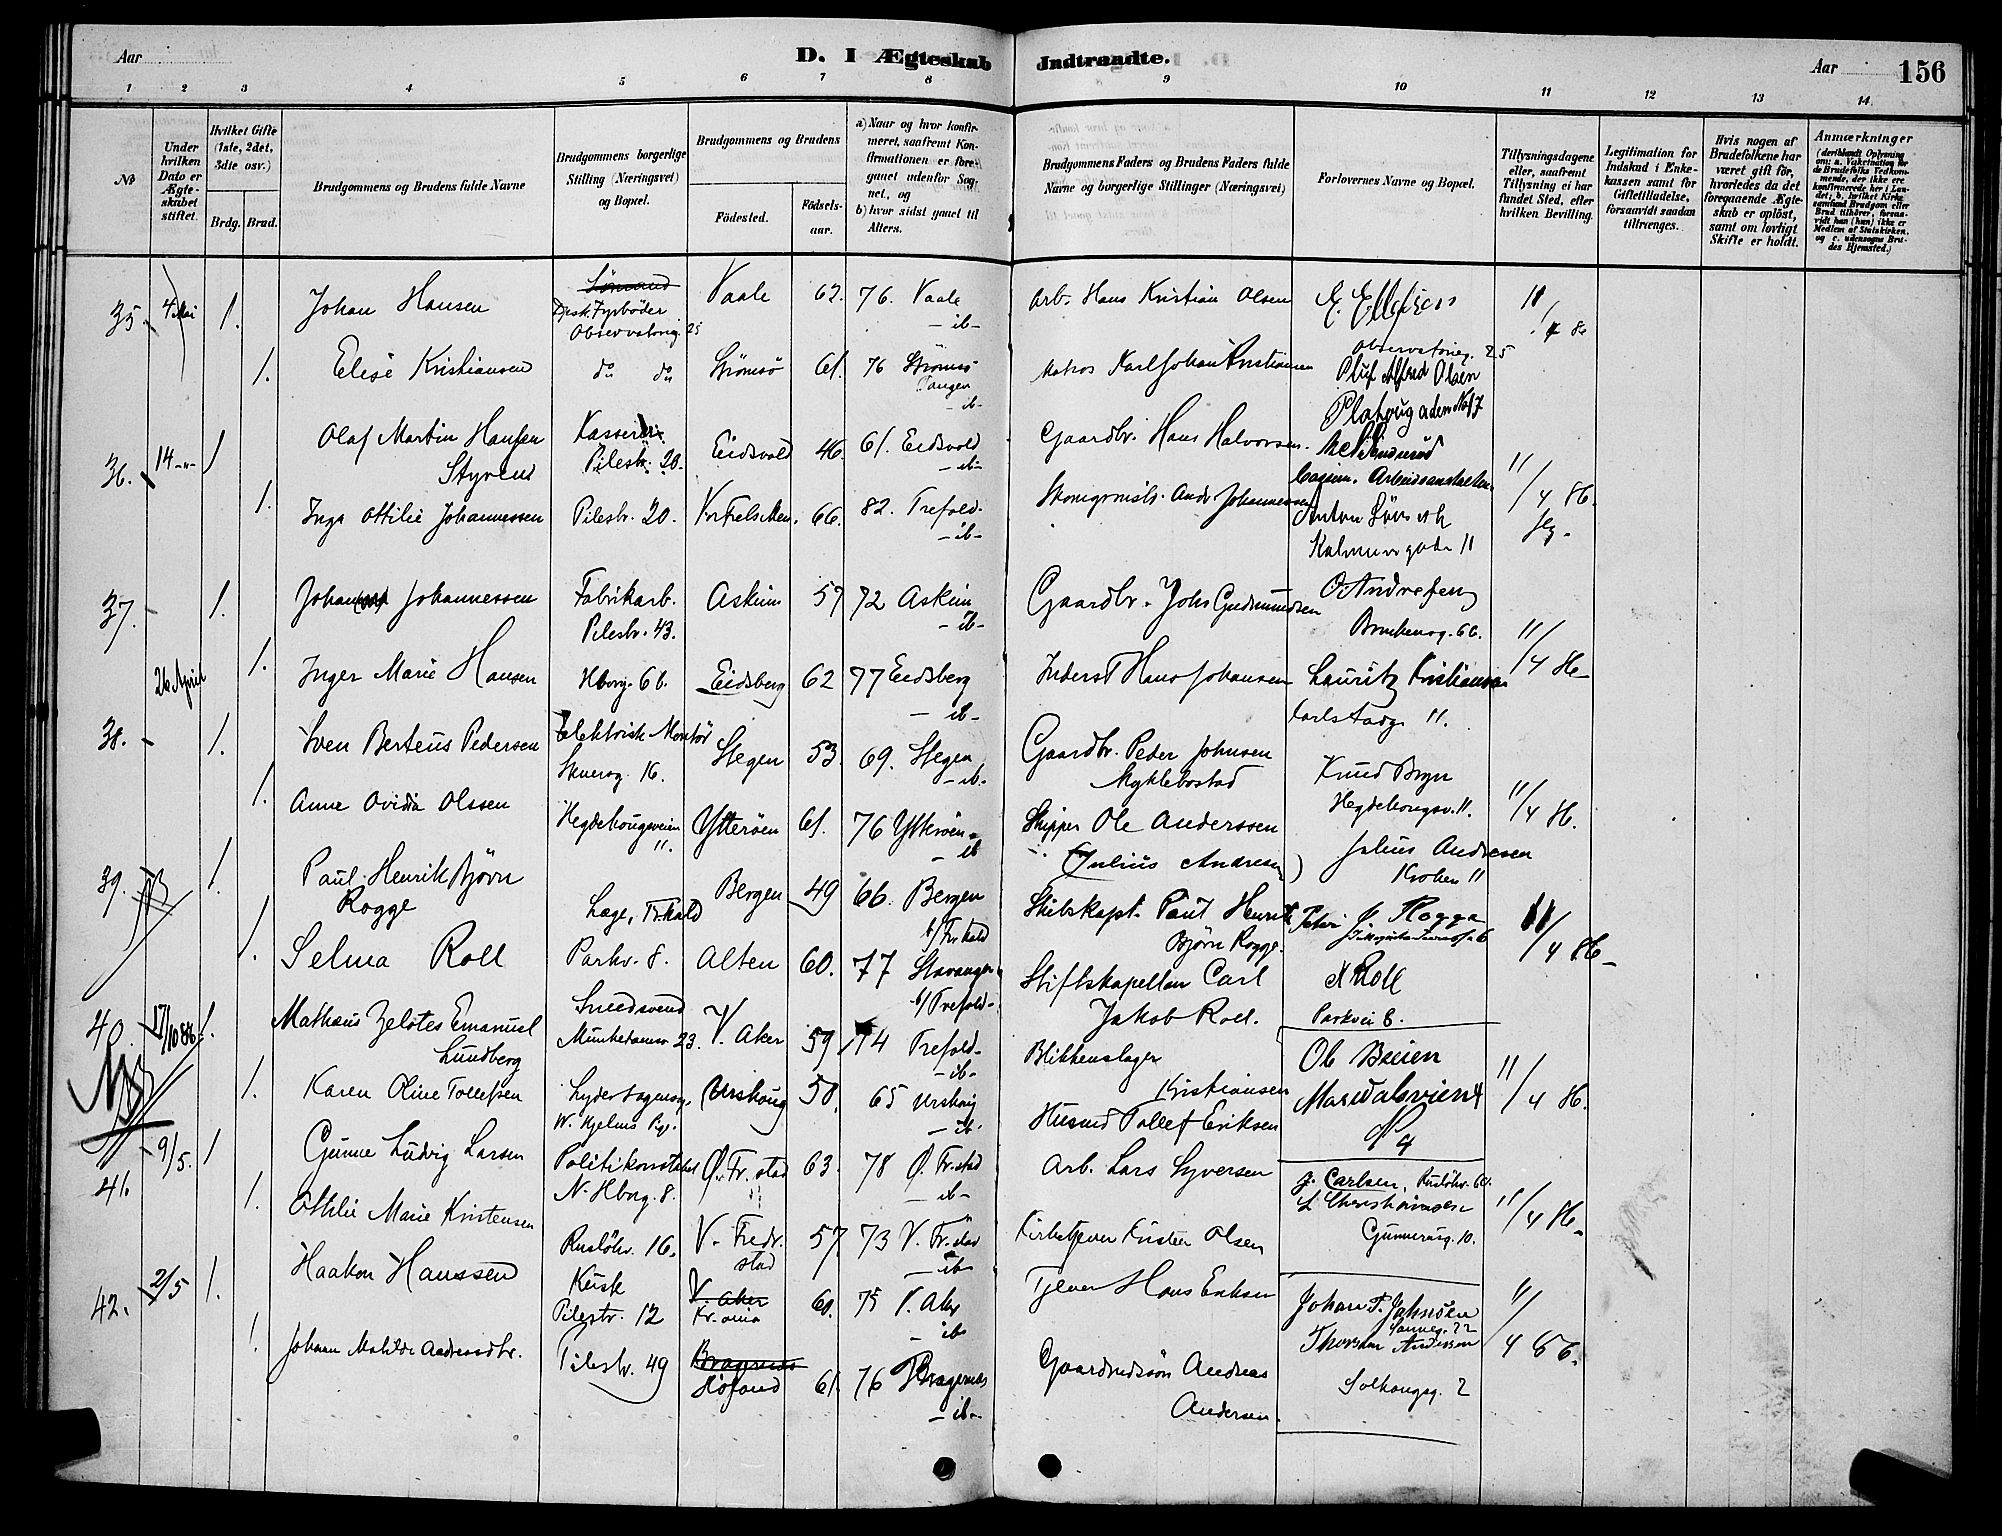 Aar
D. I Ægteskab Indtraadte.
Aar
156
1 2 3 4 5 6 7 8 9 10 11 12 13 14
No
Under hvilken Dato er Ægteskabet stiftet.
Hvilket Gifte (1ste, 2det, 3die osv.)
Brdg.
Brud.
Brudgommens og Brudens fulde Navne
Brudgommens borgerlige Stilling (Næringsvei) og Bopæl.
Brudgommens og Brudens
Fødested.
Fødselsaar.
a) Naar og hvor konfirmeret, saafremt Konfirmationen er foregaaet udenfor Sognet, og
b) hvor sidst gaaet til Alters.
Brudgommens Faders og Brudens Faders fulde Navne og borgerlige Stillinger (Næringsvei)
Forlovernes Navne og Bopæl.
Tillysningsdagene eller, saafremt Tillysning ei har fundet Sted, efter hvilken Bevilling.
Legitimation for Indskud i Enkekassen samt for Giftetilladelse, forsaavidt saadan tiltrænges.
Hvis nogen af Brudefolkene har været gift før, hvorledes da det foregaaende Ægteskab er opløst, samt om lovligt Skifte er holdt.
Anmærkninger
(deriblandt Oplysning om: a. Vakcination for de Brudefolks Vedkommende, der ikke ere konfirmerede her i Landet; b. hvilket Kirkesamfund Brudgom eller Brud tilhører, forsaavidt han (hun) ikke er Medlem af Statskirken, og c. udensogns Brudes Hjemsted.)
35. 4 Mai 1. Johan Hansen Sømand Fyrbøder Observatorieg. 25 Vaale 62. 76. Vaale -ib- Arb. Hans Kristian Olsen E. Ellefsen Observatorieg. 25 11/4 86
1. Elise Kristiansen do do Strømsø 61. 76 Strømsø Tangen -ib- Matros Karl Johan Kristiansen Oluf Alfred Olsen
36. 14 1 Olaf Martin Hansen Styrend Kasserer Pilestr. 20. Eidsvold 46. 61. Eidsvold -ib- Gaardbr. Hans Halvorsen. Arbeidsanstalten. 11/4 86.
1. Inga Ottilie Johannessen Pilestr. 20. Vor Frelsers Men. 66. 82. Trefold. -ib- Andr. Johannessen Anton
37. 1. Johannes Johannessen Fabrikarb. Pilestr. 43. Askim 57 72 Askim -ib- Gaardbr. Johs Gudmundsen O. Andresen 66. 11/4 86
26 April 1. Inger Marie Hansen Hborg. 6 b. Eidsberg 62 77 Eidsberg -ib- Inderst Hans Johansen Lauritz Kristiansen Carlstadg. 11.
38. 1. Sven Berteus Pedersen Elektrisk Montør 16. Stegen 53. 69. Stegen -ib- Gaardbr. Peder Johnsen Myklebostad Knud Bryn Hegdehougsv. 11. 11/4 86.
1. Anne Ovidia Olssen Hegdehougsveien 11. Ytterøen 61. 76 Ytterøen -ib Skipper Ole Anderssen (Julius Andresen) Julius Andresen Kroken 11
39. 1. Paul Henrik Bjørn Rogge Læge, Fr.hald Bergen 49 66. Bergen b/ Fr.hald Skibskapt. Paul Henrik Bjørn Rogge. Peter J. Rogge 11/4 86
1. Selma Roll Parkv. 8. Alten 60. 77 Stavanger b/ Trefold. Stiftskapellan Carl Jakob Roll. N Roll Parkvei 8.
40. 17/10 86 1. Mathæus Zelotes Emanuel Lundberg Smedsvend Munkedamsv. 23. V. Aker 59 74 Trefold. -ib- Blikkenslager Kristiansen Ole Breien 11/4 86.
1. Karen Oline Tollefsen Lyder Sagensg. Urskoug 58. 65 Urskoug -ib- Husmd Tollef Eriksen Maridalsveien No 4
41. 9/5. 1 Gunne Ludvig Larsen Politikonstabel N. Hborg. 8. Ø. Fr.stad 63. 78 Ø. Fr.stad -ib- Arb. Lars Syversen J. Carlsen, 11/4 86
1. Othilie Marie Kristensen Rusløkv. 16. V. Fredr. stad 57 73 V. Fr.stad -ib- Kirketjener Kristen Olsen Gunnerusg. 10.
42. 2/5 1. Haakon Hanssen Kusk Pilestr. 12 V. Aker Kr.ania 60. 75 V. Aker -ib- Tjener Hans Eriksen Johan P. Johnsen Sanneg. 22 11/4 86.
1. Johanne Mathilde Andreasdtr. Pilestr. 49 Bragernes 61. 76 Bragernes -ib- Gaardmdsøn Andreas Andersen. Thorsten Andersen Solhougg. 2